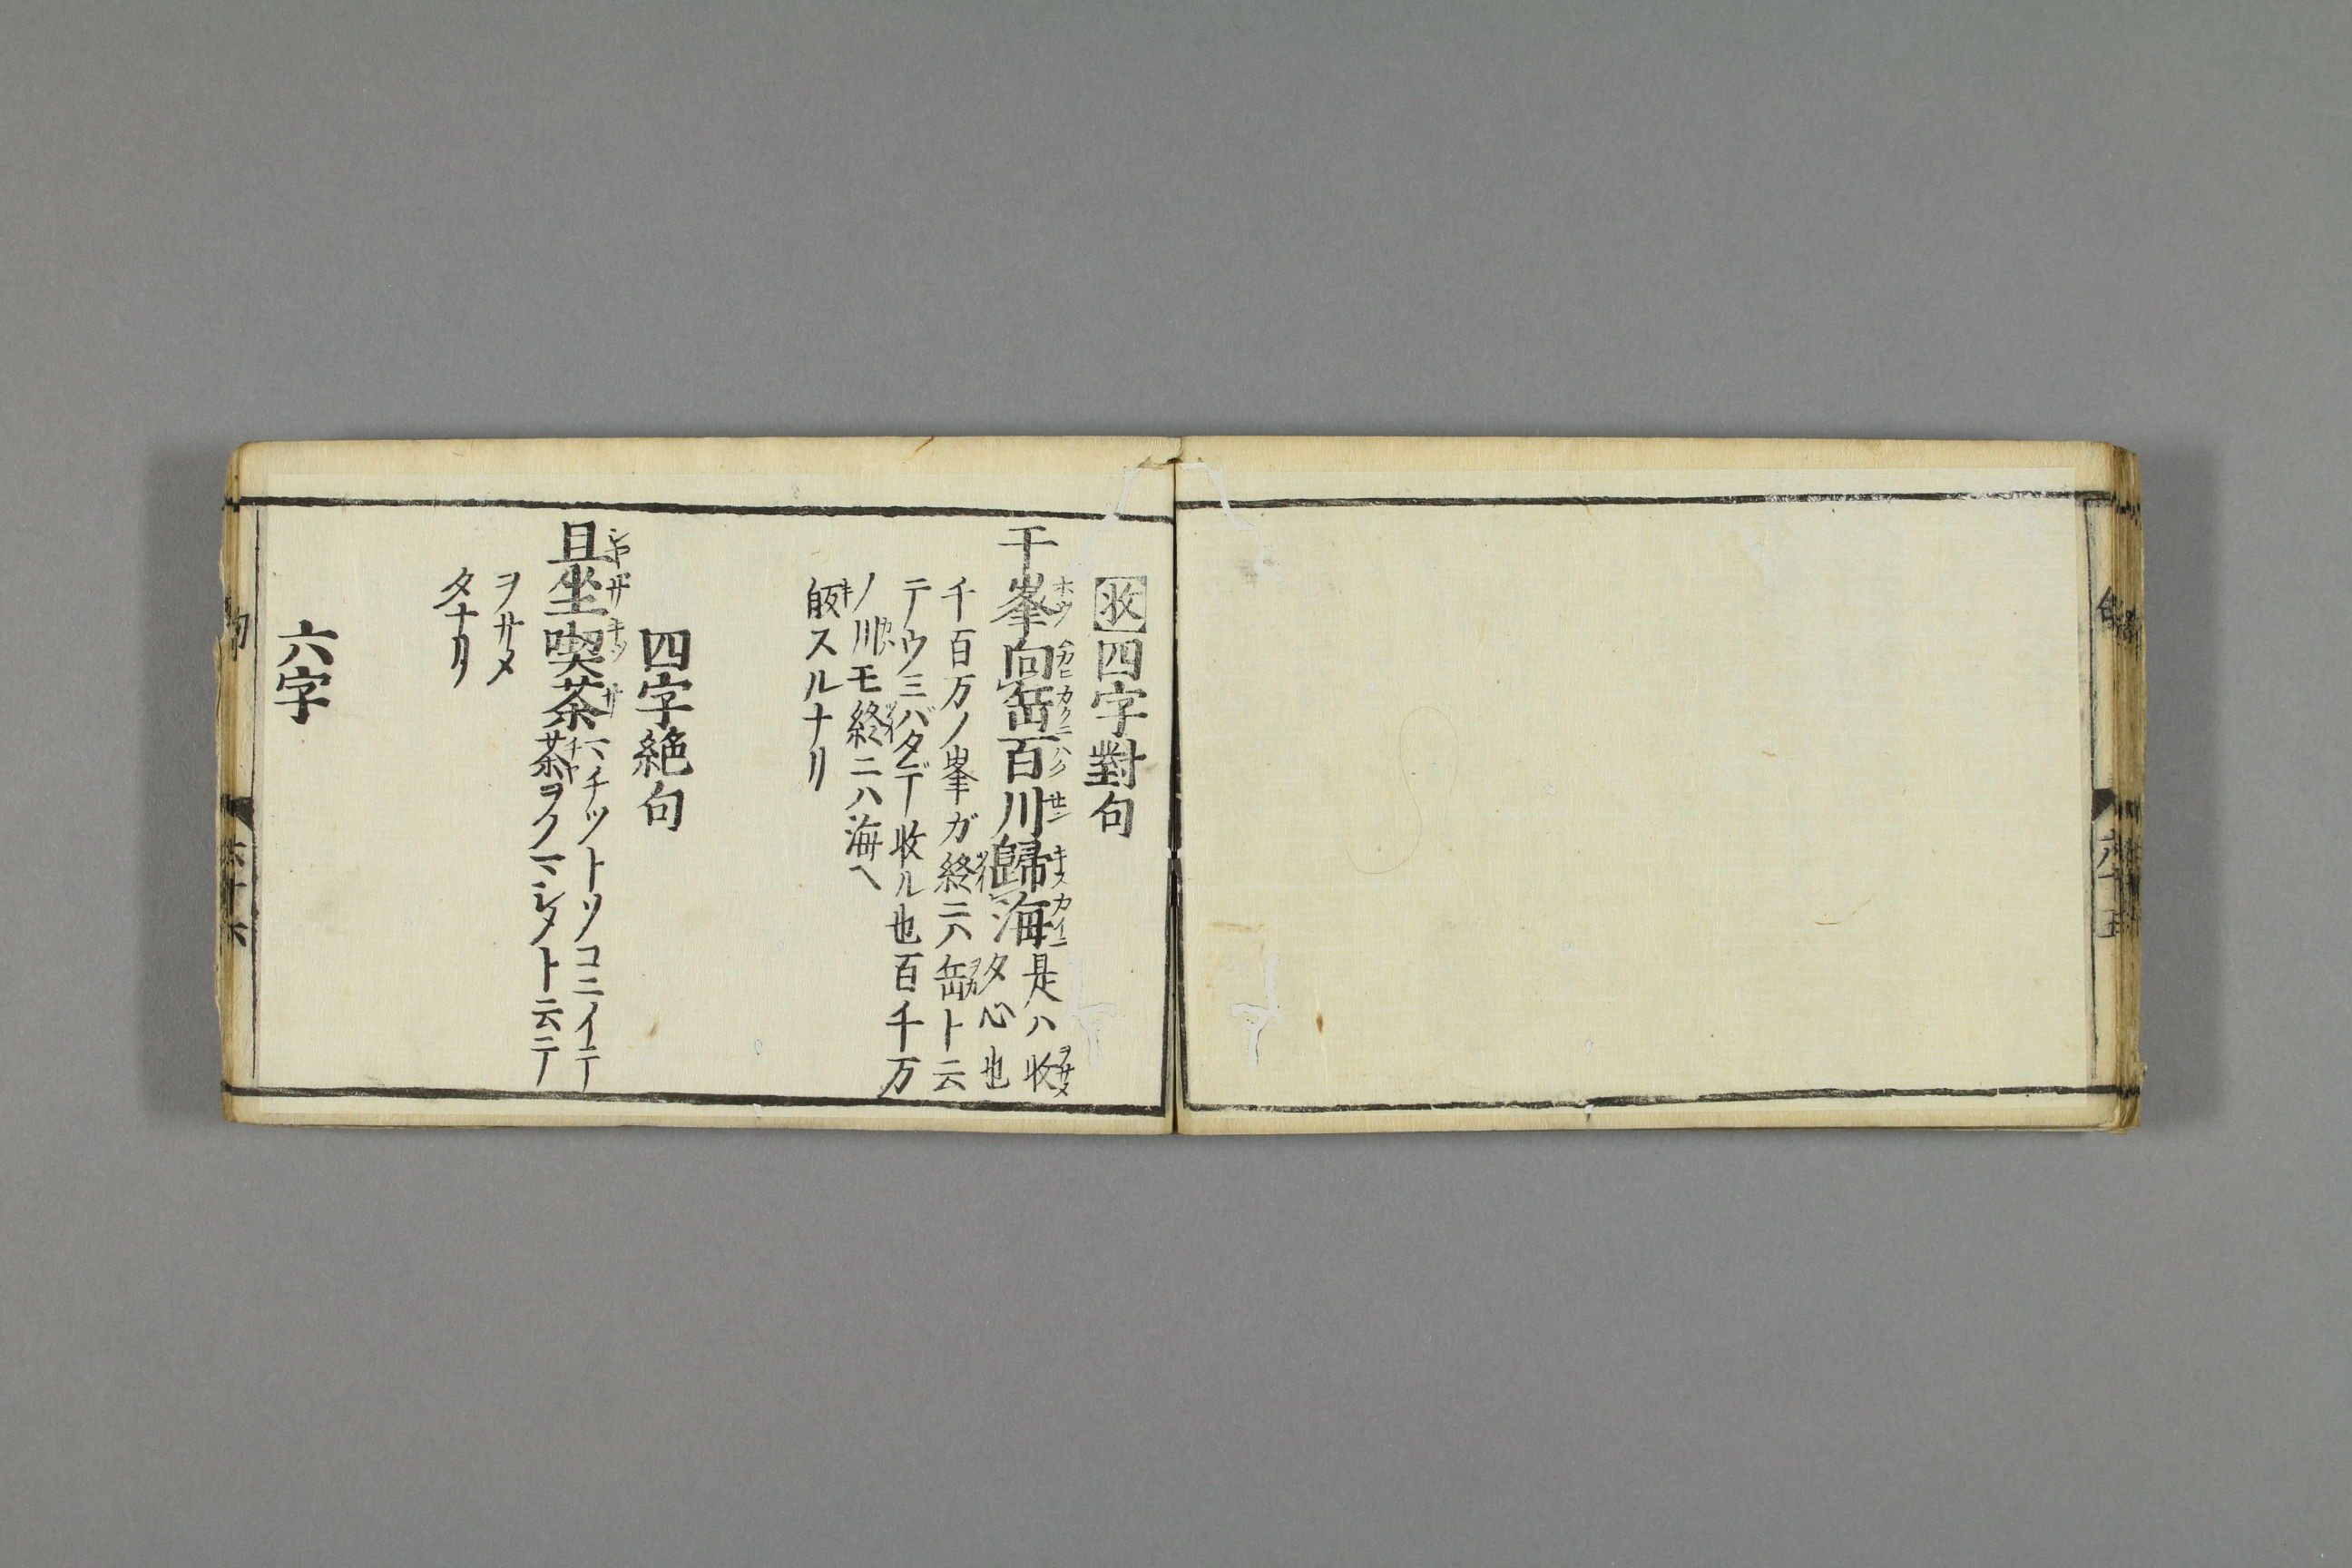 收四字對句
千峯向岳百川歸海是ハ收
タ心也
千百万ノ峯ガ終ニハ岳ト云
テウ三バタデ收ル也百千万
ノ川モ終ニハ海ヘ
皈スルナリ
四字絶句
且坐喫茶一ハチツトソコニイテ
茶ヲクマシメト云テ
ヲサメ
タナリ
六字
六十六